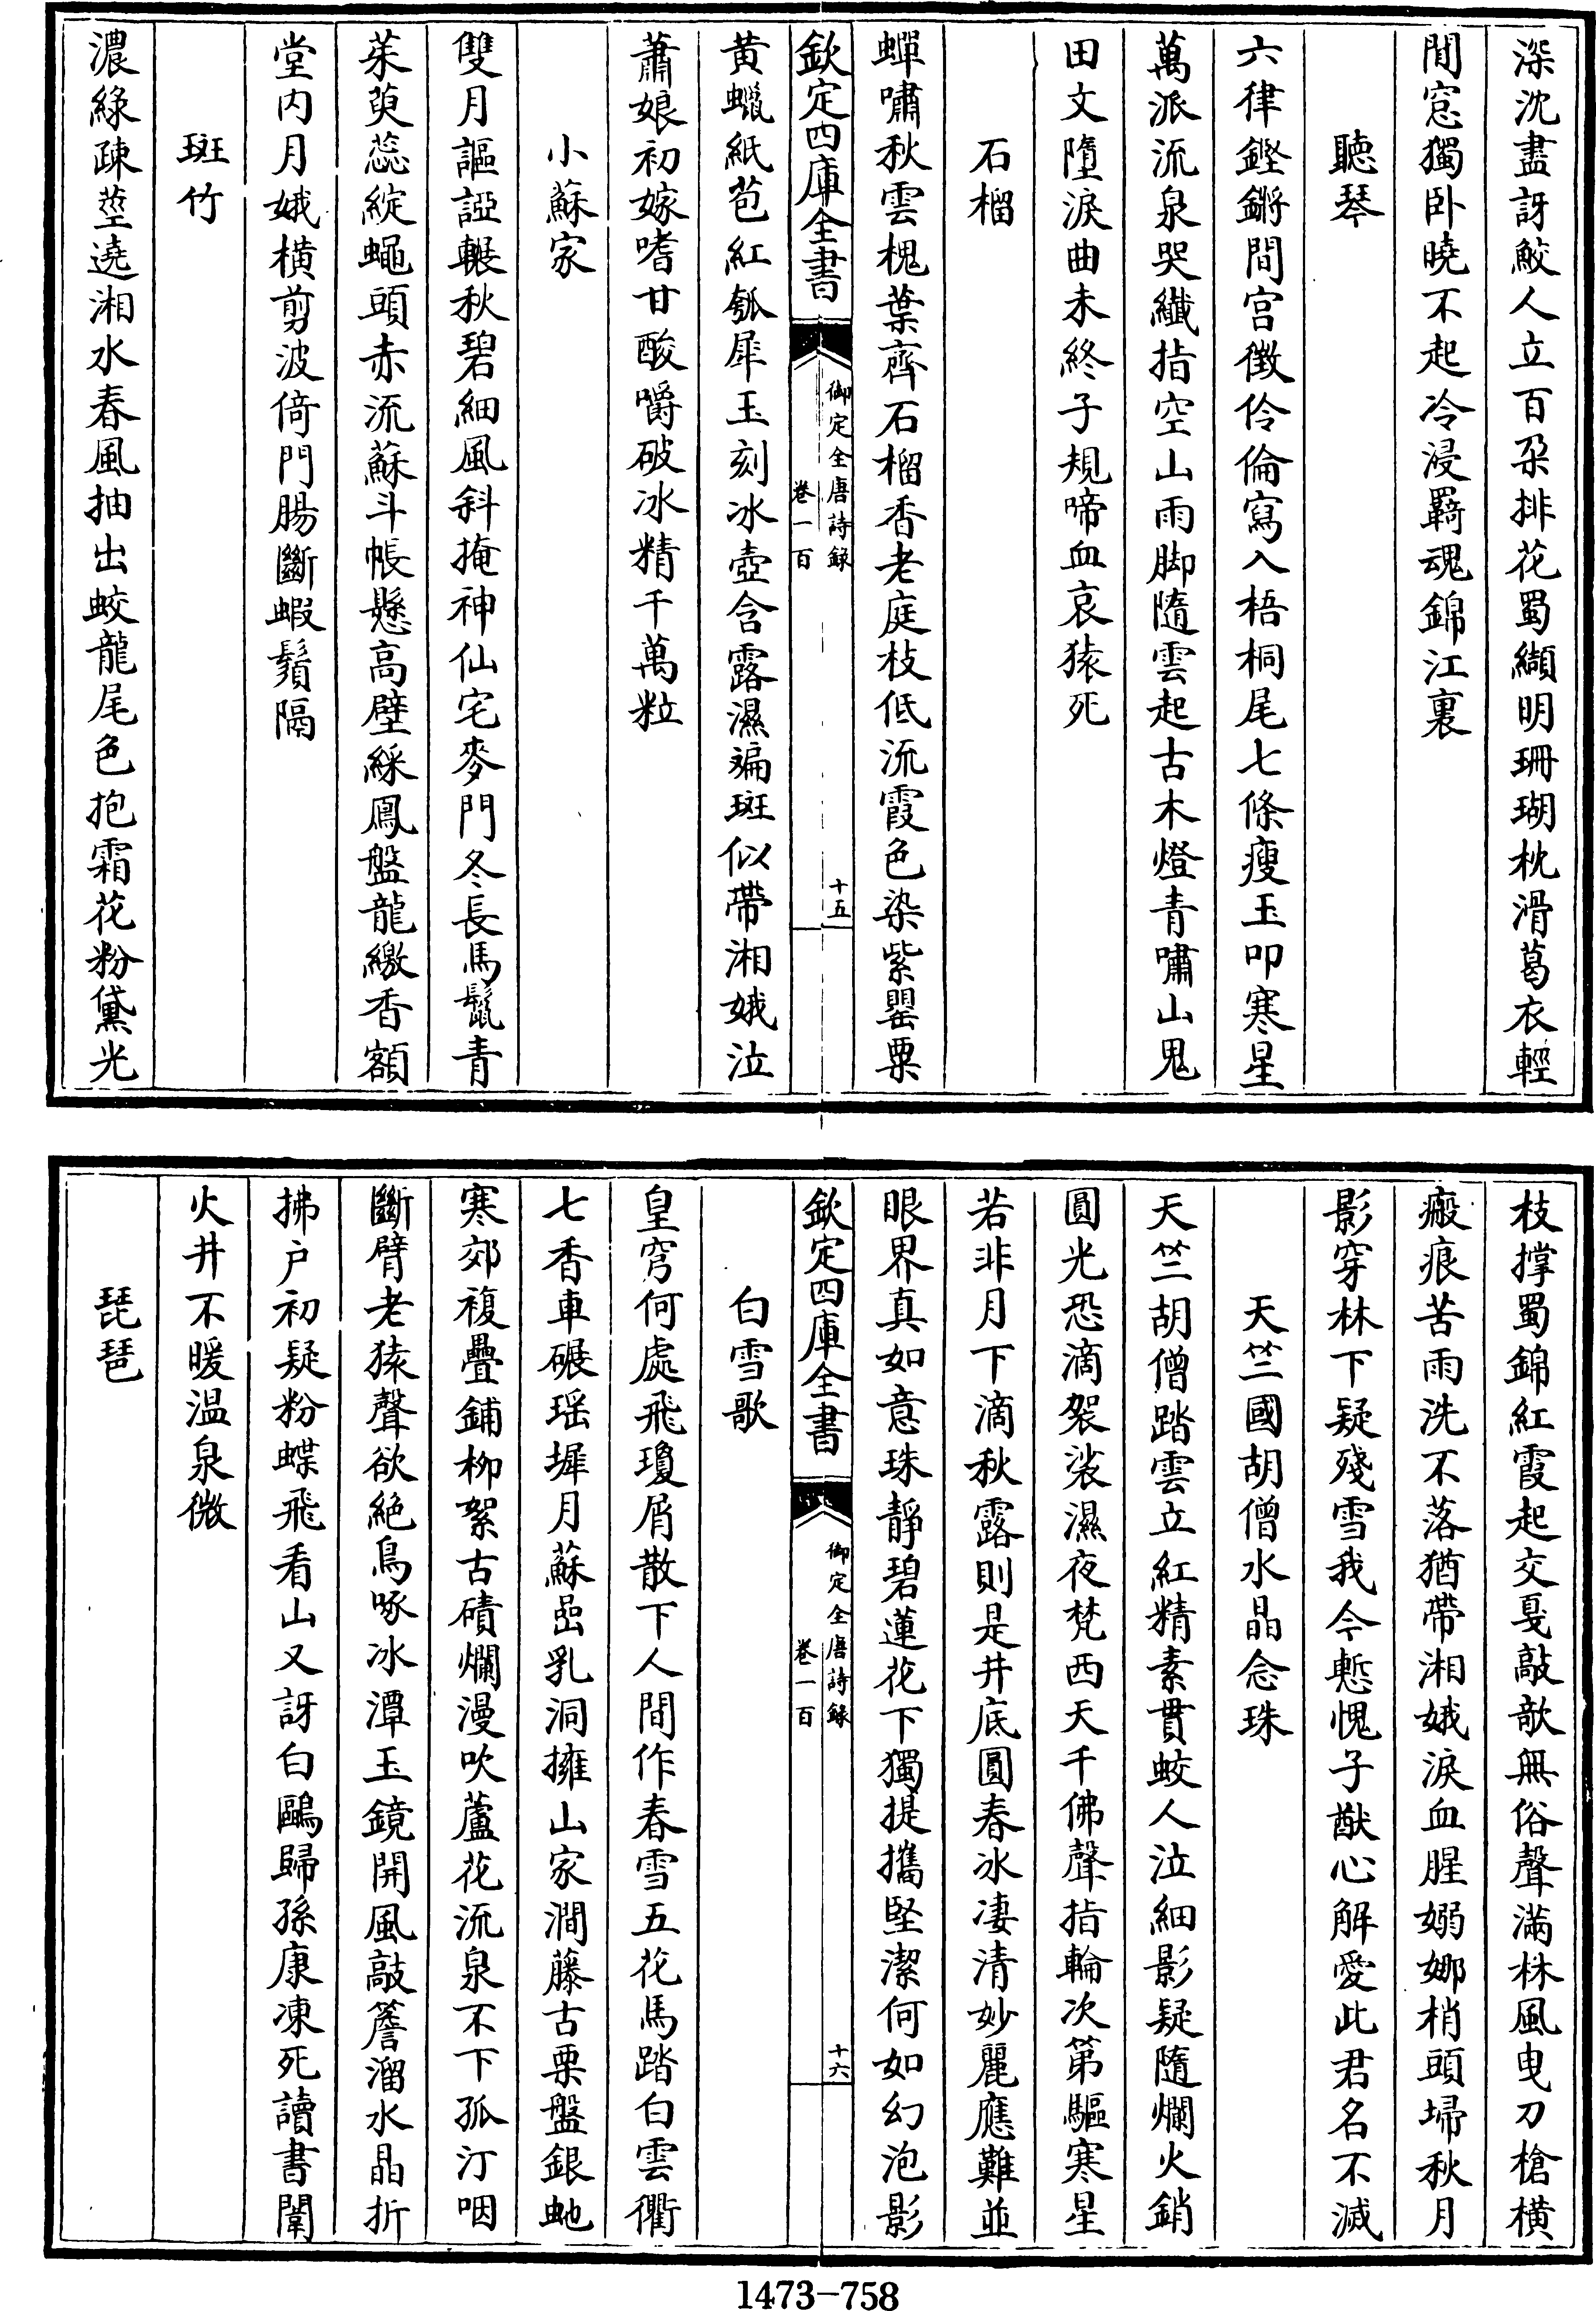 深沈盡訝鮫人立百朶排花蜀纈明珊瑚枕滑葛衣輕
閒窓獨卧曉不起冷浸羇魂錦江裏
聽琴
六律鏗鏘間宫徵伶倫寫入梧桐尾七條瘦玉叩寒星
萬派流泉哭纎指空山雨脚隨雲起古木燈青嘯山鬼
田文墮淚曲未終子規啼血哀猿死
石榴
蟬嘯秋雲槐葉齊石榴香老庭枝低流霞色染紫罌粟
欽定四庫全書
御定全唐詩録
卷一百
十五
黄蠟紙苞紅瓠犀玉刻冰壺含露濕斒斑似帶湘娥泣
蕭娘初嫁嗜甘酸嚼破冰精千萬粒
小蘇家
雙月謳䛩輾秋碧細風斜掩神仙宅麥門冬長馬鬛青
茱萸蕊綻蠅頭赤流蘇斗帳懸高壁綵鳳盤龍繳香額
堂内月娥横剪波倚門腸斷蝦鬚隔
斑竹
濃緑疎莖遶湘水春風抽出蛟龍尾色抱霜花粉黛光
枝撑蜀錦紅霞起交戛敲欹無俗聲滿林風曳刀槍横
瘢痕苦雨洗不落猶帶湘娥淚血腥嫋娜梢頭埽秋月
影穿林下疑殘雪我今慙愧子猷心解愛此君名不滅
天竺國胡僧水晶念珠
天竺胡僧踏雲立紅精素貫蛟人泣細影疑隨爛火銷
圓光恐滴袈裟濕夜梵西天千佛聲指輪次第驅寒星
若非月下滴秋露則是井底圓春冰凄清妙麗應難並
眼界真如意珠靜碧蓮花下獨提攜堅潔何如幻泡影
欽定四庫全書
御定全唐詩録
卷一百
十六
白雪歌
皇穹何處飛瓊屑散下人間作春雪五花馬踏白雲衢
七香車碾瑶墀月蘇嵒乳洞擁山家澗藤古栗盤銀虵
寒郊複疊鋪栁絮古磧爛漫吹蘆花流泉不下孤汀咽
斷臂老猿聲欲絶鳥啄冰潭玉鏡開風敲簷溜水晶折
拂户初疑粉蝶飛看山又訝白鷗歸孫康凍死讀書闈
火井不暖温泉微
琵琶
1473-758